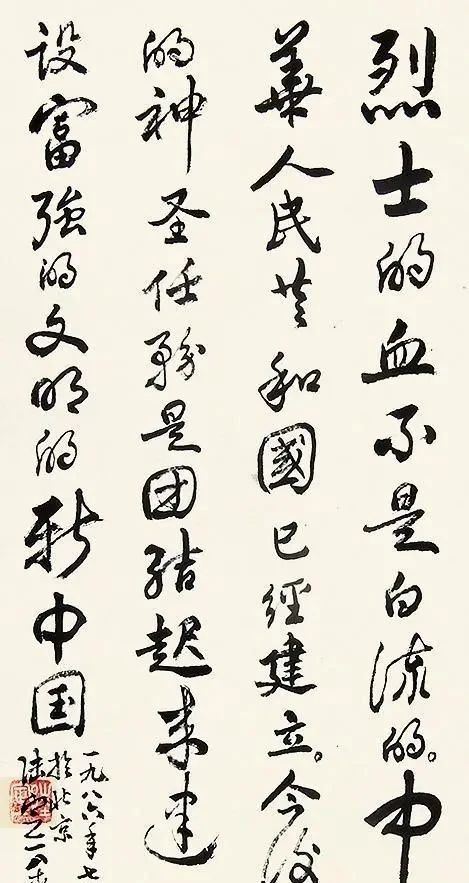 烈士的血不是白流的。中
華人民共和國已經建立。今後
的神圣任務是团结起来建
设富強的文明的新中国
一九八六年七
於北京
陆定一